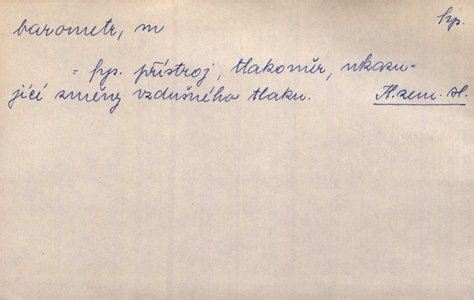 fys.
barometr, m
= fys. přístroj, tlakoměr, ukazu-
jící změny vzdušného tlaku. H.zem. sl.